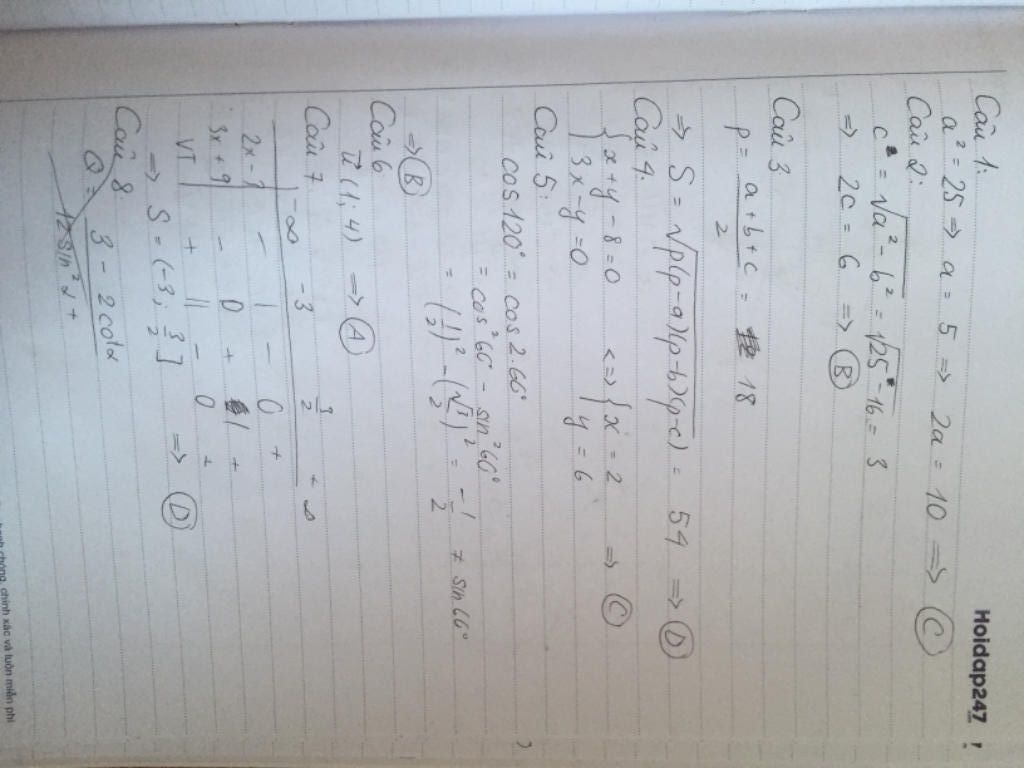 Hoidap247
Câu 1:
a² = 25 => a = 5 => 2a = 10 => C
Câu 2:
c = √a² - b² = √25 - 16 = 3
=> 2c = 6 => B
Câu 3
p = a + b + c / 2 = 18
=> S = √p(p-a)(p-b)(p-c) = 54 => D
Câu 4:
{ x + y - 8 = 0 <=> { x = 2 => C
3x - y = 0 y = 6
Câu 5:
cos 120° = cos 2.60°
= cos² 60° - sin² 60°
= (1/2)² - (√3/2)² = -1/2 ≠ sin 60°
=> B
Câu 6
u⃗ (1; 4) => A
Câu 7
-∞ -3 3/2 +∞
2x - 3 - | - 0 +
3x + 9 - 0 + | +
VT + || - 0 +
=> S = (-3; 3/2] => D
Câu 8
Q = 3 - 2cotα
12 sin²α +
chóng, chính xác và luôn miễn phí